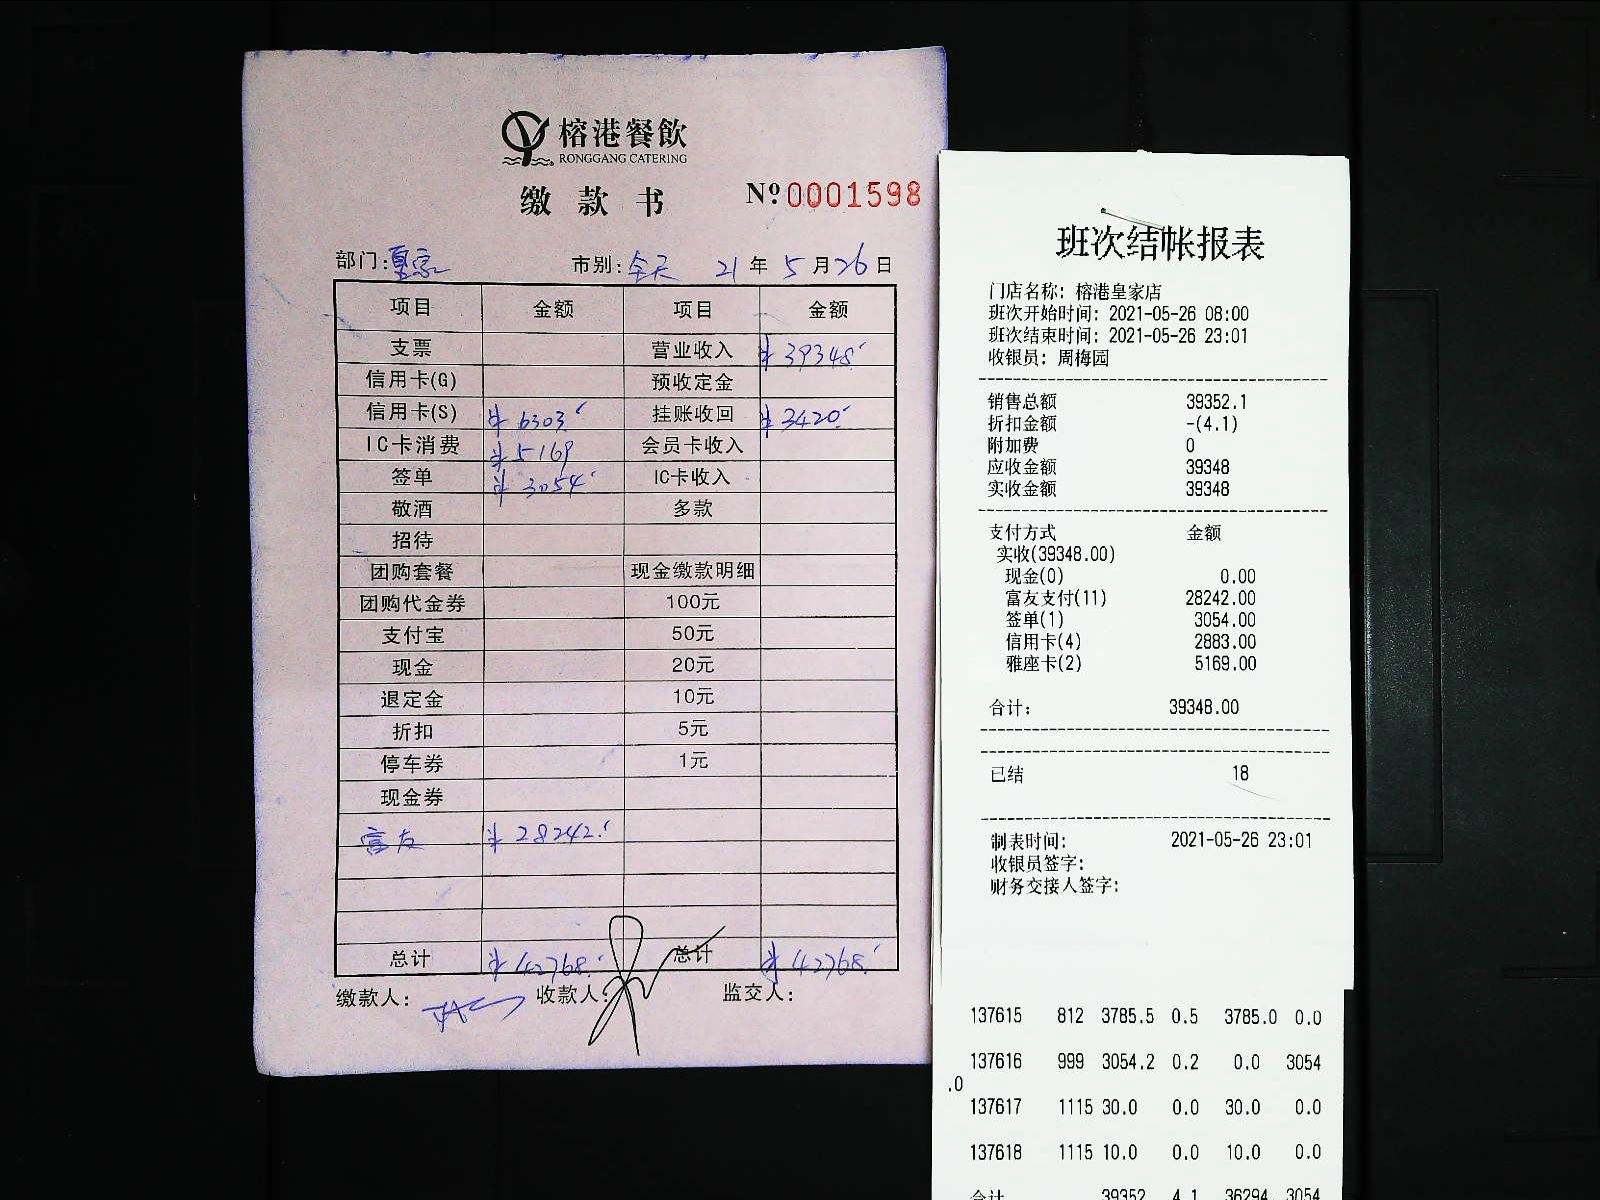 榕港餐飲
RONGGANG CATERING
缴款书 Nº0001598
部门:皇家 市别:全天 21年5月26日
项目 金额 项目 金额
支票 营业收入 ¥39348
信用卡(G) 预收定金
信用卡(S) ¥6303 挂账收回 ¥3420
IC卡消费 ¥5169 会员卡收入
签单 ¥3054 IC卡收入
敬酒 多款
招待
团购套餐 现金缴款明细
团购代金券 100元
支付宝 50元
现金 20元
退定金 10元
折扣 5元
停车券 1元
现金券
富友 ¥28242
总计 ¥42768 总计 ¥42768
缴款人: 收款人: 监交人:
班次结帐报表
门店名称: 榕港皇家店
班次开始时间: 2021-05-26 08:00
班次结束时间: 2021-05-26 23:01
收银员: 周梅园
销售总额 39352.1
折扣金额 -(4.1)
附加费 0
应收金额 39348
实收金额 39348
支付方式 金额
实收(39348.00)
现金(0) 0.00
富友支付(11) 28242.00
签单(1) 3054.00
信用卡(4) 2883.00
雅座卡(2) 5169.00
合计: 39348.00
已结 18
制表时间: 2021-05-26 23:01
收银员签字:
财务交接人签字:
137615 812 3785.5 0.5 3785.0 0.0
137616 999 3054.2 0.2 0.0 3054
.0
137617 1115 30.0 0.0 30.0 0.0
137618 1115 10.0 0.0 10.0 0.0
合计 39352 4.1 36294 3054